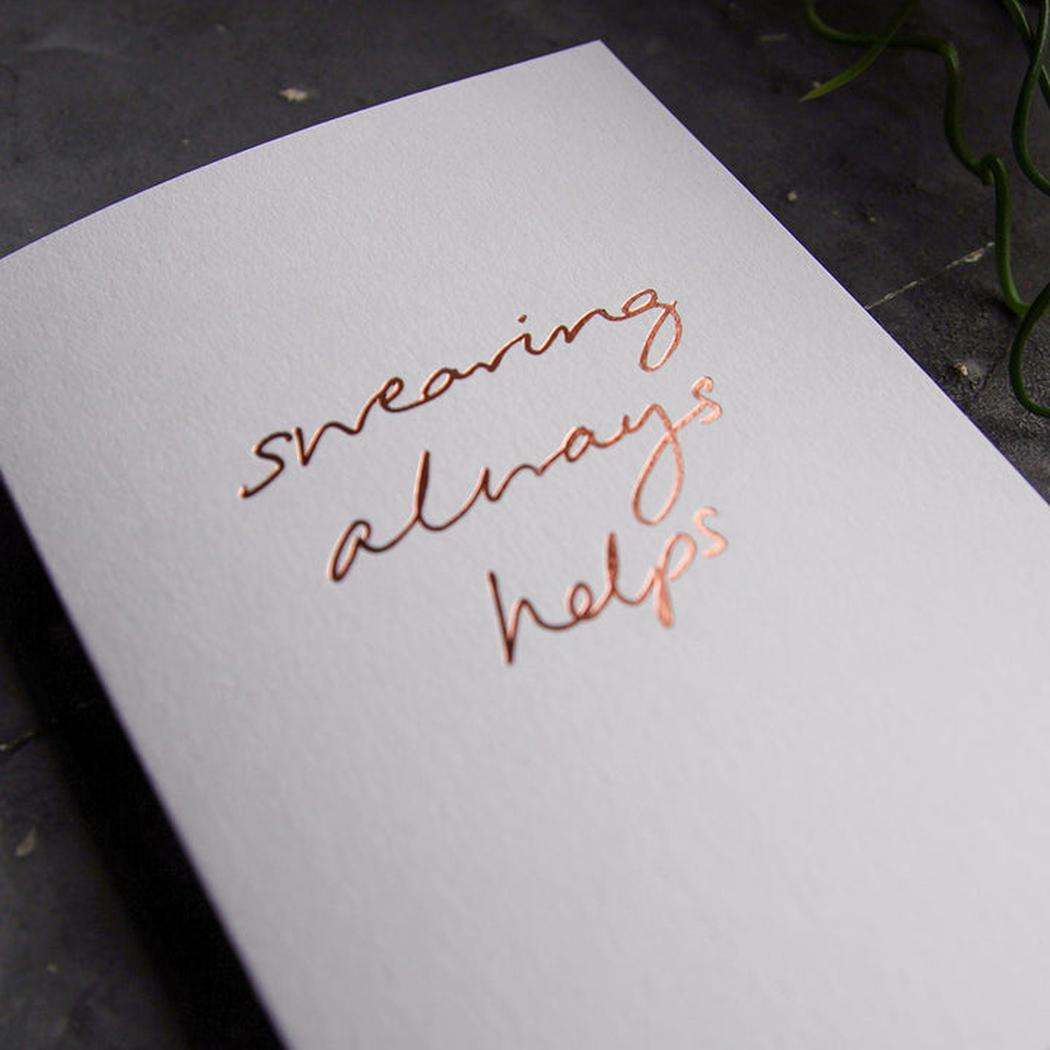 swearing
always
helps